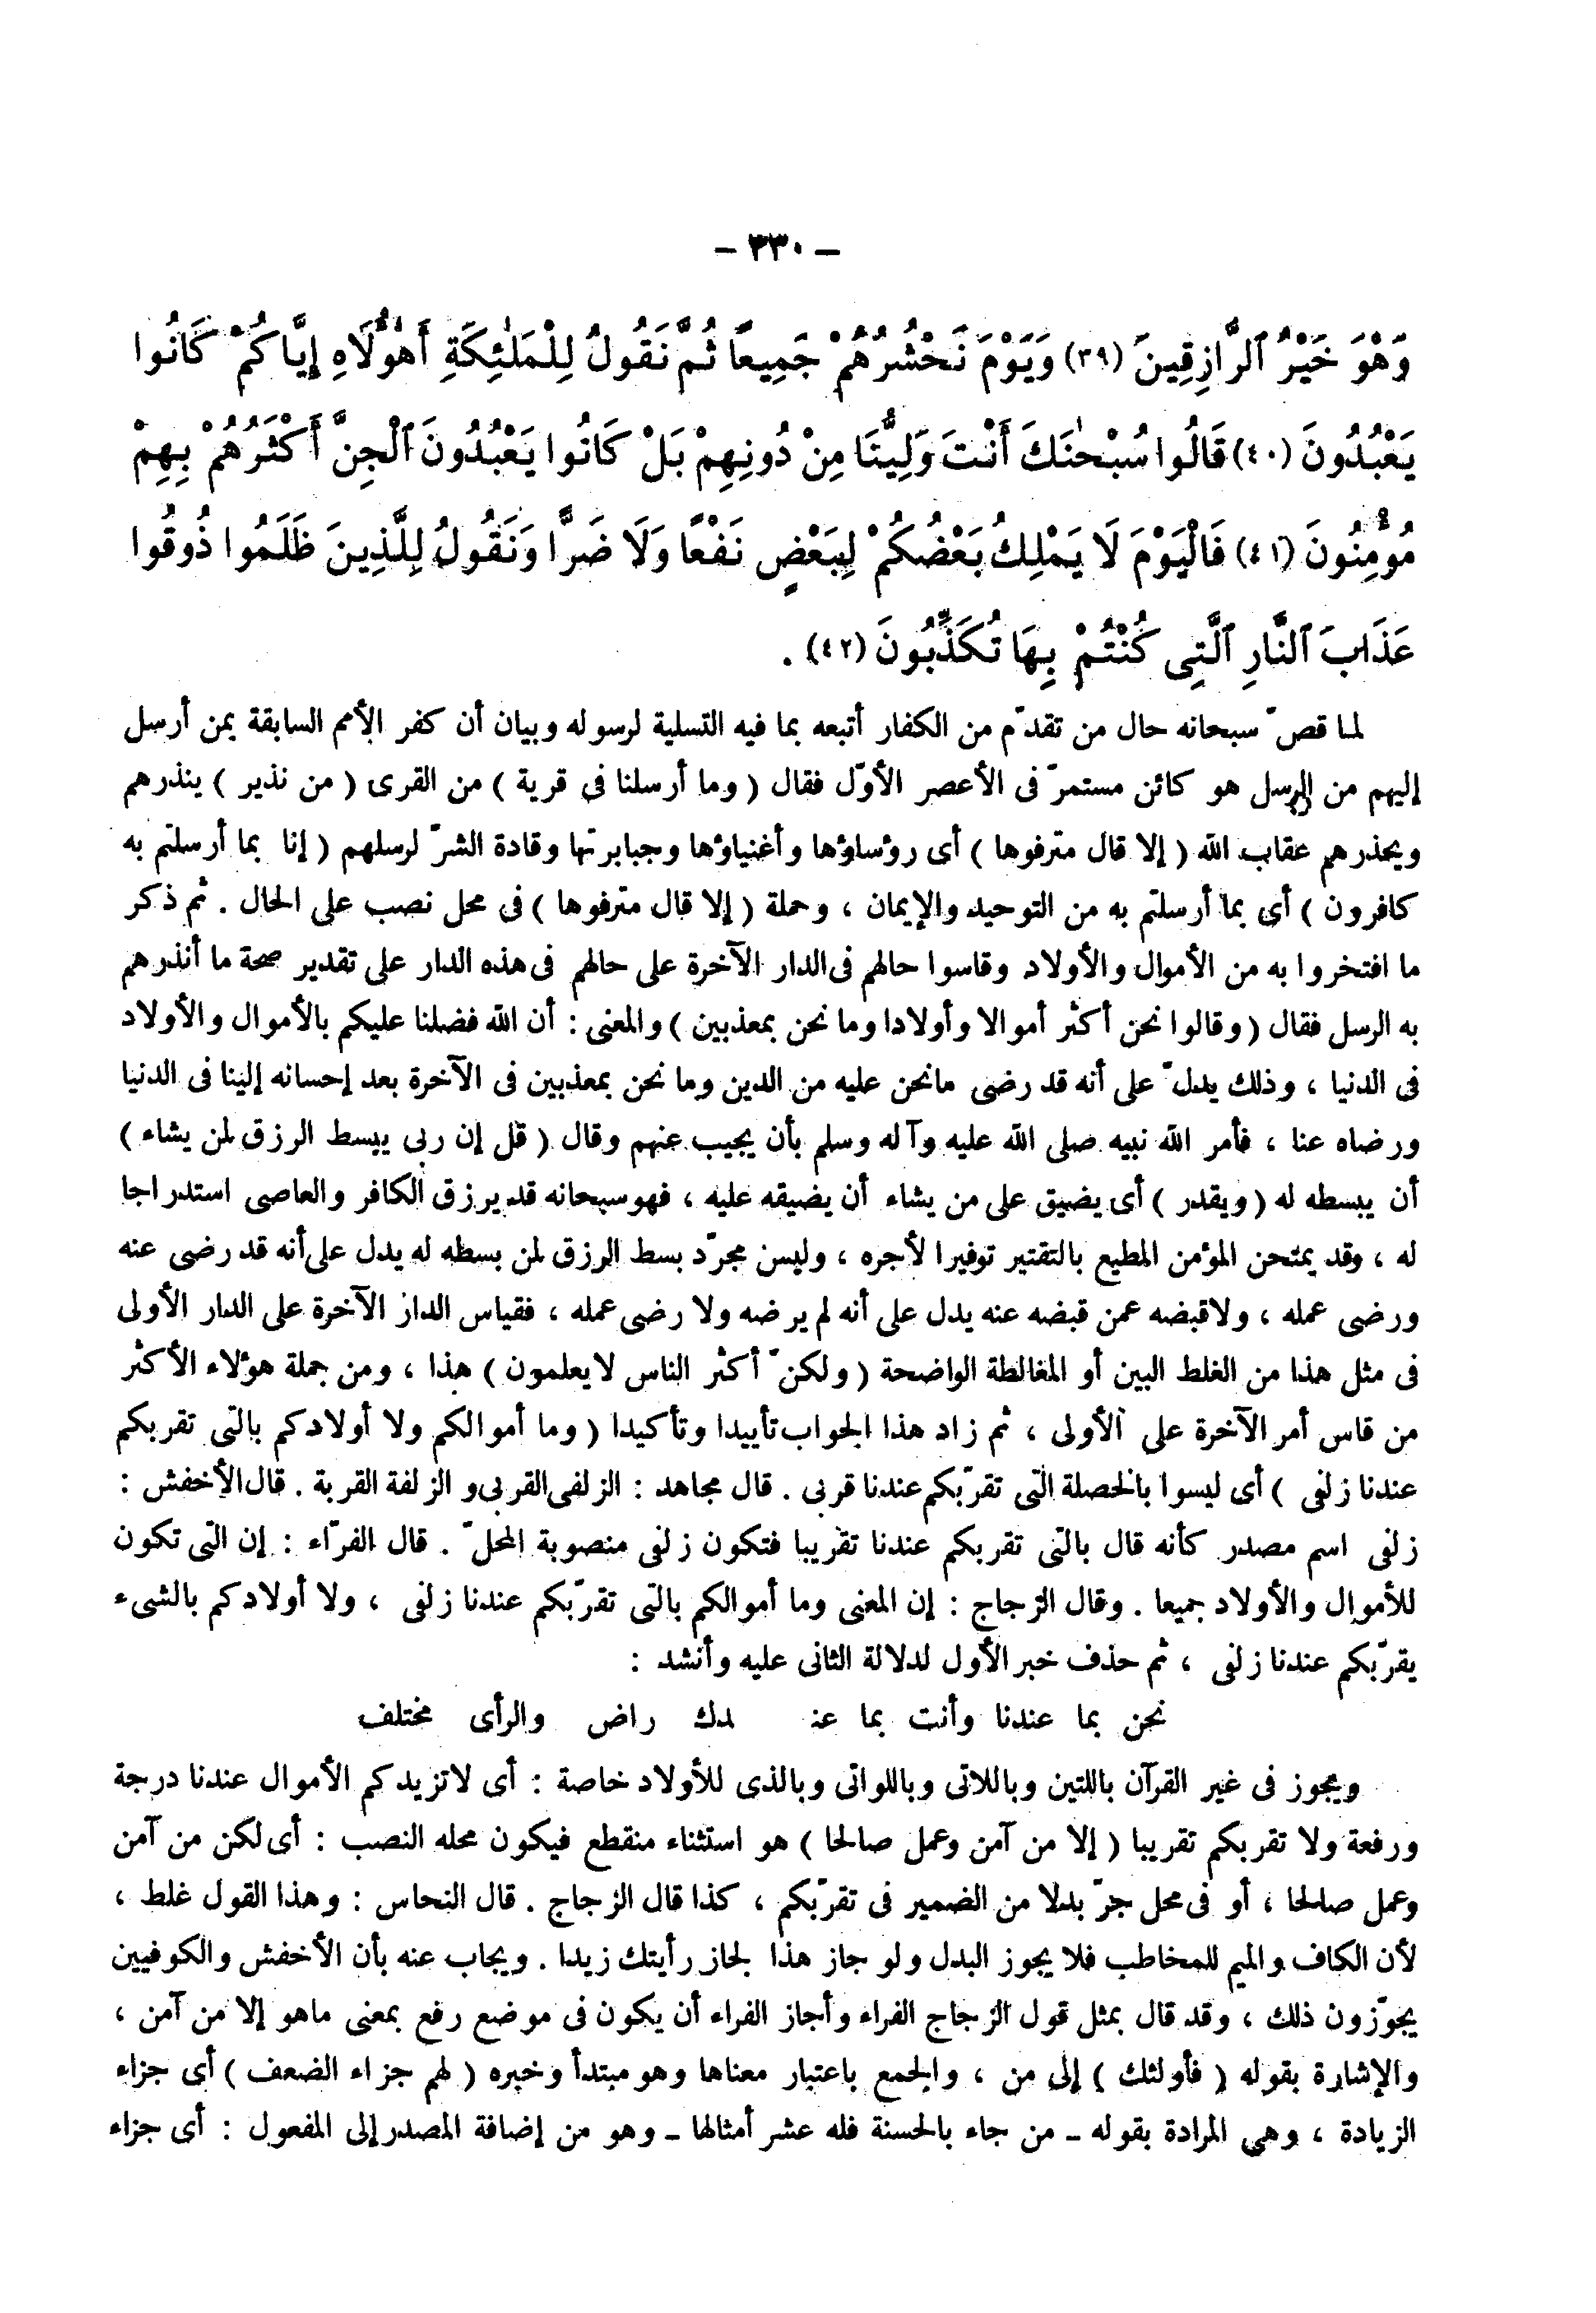 – ٣٣٠ –
وَهْوَ خَيْرُ ٱلرَّازِقِينَ (٣٩) وَيَوْمَ نَحْشُرُهُمْ جَمِيعًا ثُمَّ نَقُولُ لِلْمَلٰئِكَةِ أَهٰؤُلَاءِ إِيَّاكُمْ كَانُوا
يَعْبُدُونَ (٤٠) قَالُوا سُبْحٰنَكَ أَنْتَ وَلِيُّنَا مِنْ دُونِهِمْ بَلْ كَانُوا يَعْبُدُونَ ٱلْجِنَّ أَكْثَرُهُمْ بِهِمْ
مُؤْمِنُونَ (٤١) فَالْيَوْمَ لَا يَمْلِكُ بَعْضُكُمْ لِبَعْضٍ نَفْعًا وَلَا ضَرًّا وَنَقُولُ لِلَّذِينَ ظَلَمُوا ذُوقُوا
عَذَابَ ٱلنَّارِ ٱلَّتِى كُنْتُمْ بِهَا تُكَذِّبُونَ (٤٢) .
لما قصّ سبحانه حال من تقدّم من الكفار أتبعه بما فيه التسلية لرسوله وبيان أن كفر الأمم السابقة بمن أرسل
إليهم من الرسل هو كائن مستمرّ فى الأعصر الأوّل فقال ( وما أرسلنا فى قرية ) من القرى ( من نذير ) ينذرهم
ويحذرهم عقاب الله ( إلا قال مترفوها ) أى رؤساؤها وأغنياؤها وجبابرتها وقادة الشرّ لرسلهم ( إنا بما أرسلتم به
كافرون ) أى بما أرسلتم به من التوحيد والإيمان ، وجملة ( إلا قال مترفوها ) فى محل نصب على الحال . ثم ذكر
ما افتخروا به من الأموال والأولاد وقاسوا حالهم فى الدار الآخرة على حالهم فى هذه الدار على تقدير صحة ما أنذرهم
به الرسل فقال ( وقالوا نحن أكثر أموالا وأولادا وما نحن بمعذبين ) والمعنى : أن الله فضلنا عليكم بالأموال والأولاد
فى الدنيا ، وذلك يدلّ على أنه قد رضى مانحن عليه من الدين وما نحن بمعذبين فى الآخرة بعد إحسانه إلينا فى الدنيا
ورضاه عنا ، فأمر الله نبيه صلى الله عليه وآله وسلم بأن يجيب عنهم وقال ( قل إن ربى يبسط الرزق لمن يشاء )
أن يبسطه له ( ويقدر ) أى يضيق على من يشاء أن يضيقه عليه ، فهو سبحانه قد يرزق الكافر والعاصى استدراجا
له ، وقد يمتحن المؤمن المطيع بالتقتير توفيرا لأجره ، وليس مجرّد بسط الرزق لمن بسطه له يدل على أنه قد رضى عنه
ورضى عمله ، ولاقبضه عمن قبضه عنه يدل على أنه لم يرضه ولا رضى عمله ، فقياس الدار الآخرة على الدار الأولى
فى مثل هذا من الغلط البين أو المغالطة الواضحة ( ولكنّ أكثر الناس لايعلمون ) هذا ، ومن جملة هؤلاء الأكثر
من قاس أمر الآخرة على الأولى ، ثم زاد هذا الجواب تأييدا وتأكيدا ( وما أموالكم ولا أولادكم بالتى تقربكم
عندنا زلفى ) أى ليسوا بالخصلة التى تقرّبكم عندنا قربى . قال مجاهد : الزلفى القربى و الزلفة القربة . قال الأخفش :
زلفى اسم مصدر كأنه قال بالتى تقربكم عندنا تقريبا فتكون زلفى منصوبة المحلّ . قال الفرّاء : إن التى تكون
للأموال والأولاد جميعا . وقال الزجاج : إن المعنى وما أموالكم بالتى تقرّبكم عندنا زلفى ، ولا أولادكم بالشىء
يقرّبكم عندنا زلفى ، ثم حذف خبر الأول لدلالة الثانى عليه وأنشد :
نحن بما عندنا وأنت بما عنـ ـدك راض والرأى مختلف
ويجوز فى غير القرآن باللتين وباللاتى وباللواتى وبالذى للأولاد خاصة : أى لاتزيدكم الأموال عندنا درجة
ورفعة ولا تقربكم تقريبا ( إلا من آمن وعمل صالحا ) هو استثناء منقطع فيكون محله النصب : أى لكن من آمن
وعمل صالحا ، أو فى محل جرّ بدلا من الضمير فى تقرّبكم ، كذا قال الزجاج . قال النحاس : وهذا القول غلط ،
لأن الكاف والميم للمخاطب فلا يجوز البدل ولو جاز هذا لجاز رأيتك زيدا . ويجاب عنه بأن الأخفش والكوفيين
يجوّزون ذلك ، وقد قال بمثل قول الزجاج الفراء وأجاز الفراء أن يكون فى موضع رفع بمعنى ماهو إلا من آمن ،
والإشارة بقوله ( فأولئك ) إلى من ، والجمع باعتبار معناها وهو مبتدأ وخبره ( لهم جزاء الضعف ) أى جزاء
الزيادة ، وهى المرادة بقوله – من جاء بالحسنة فله عشر أمثالها – وهو من إضافة المصدر إلى المفعول : أى جزاء